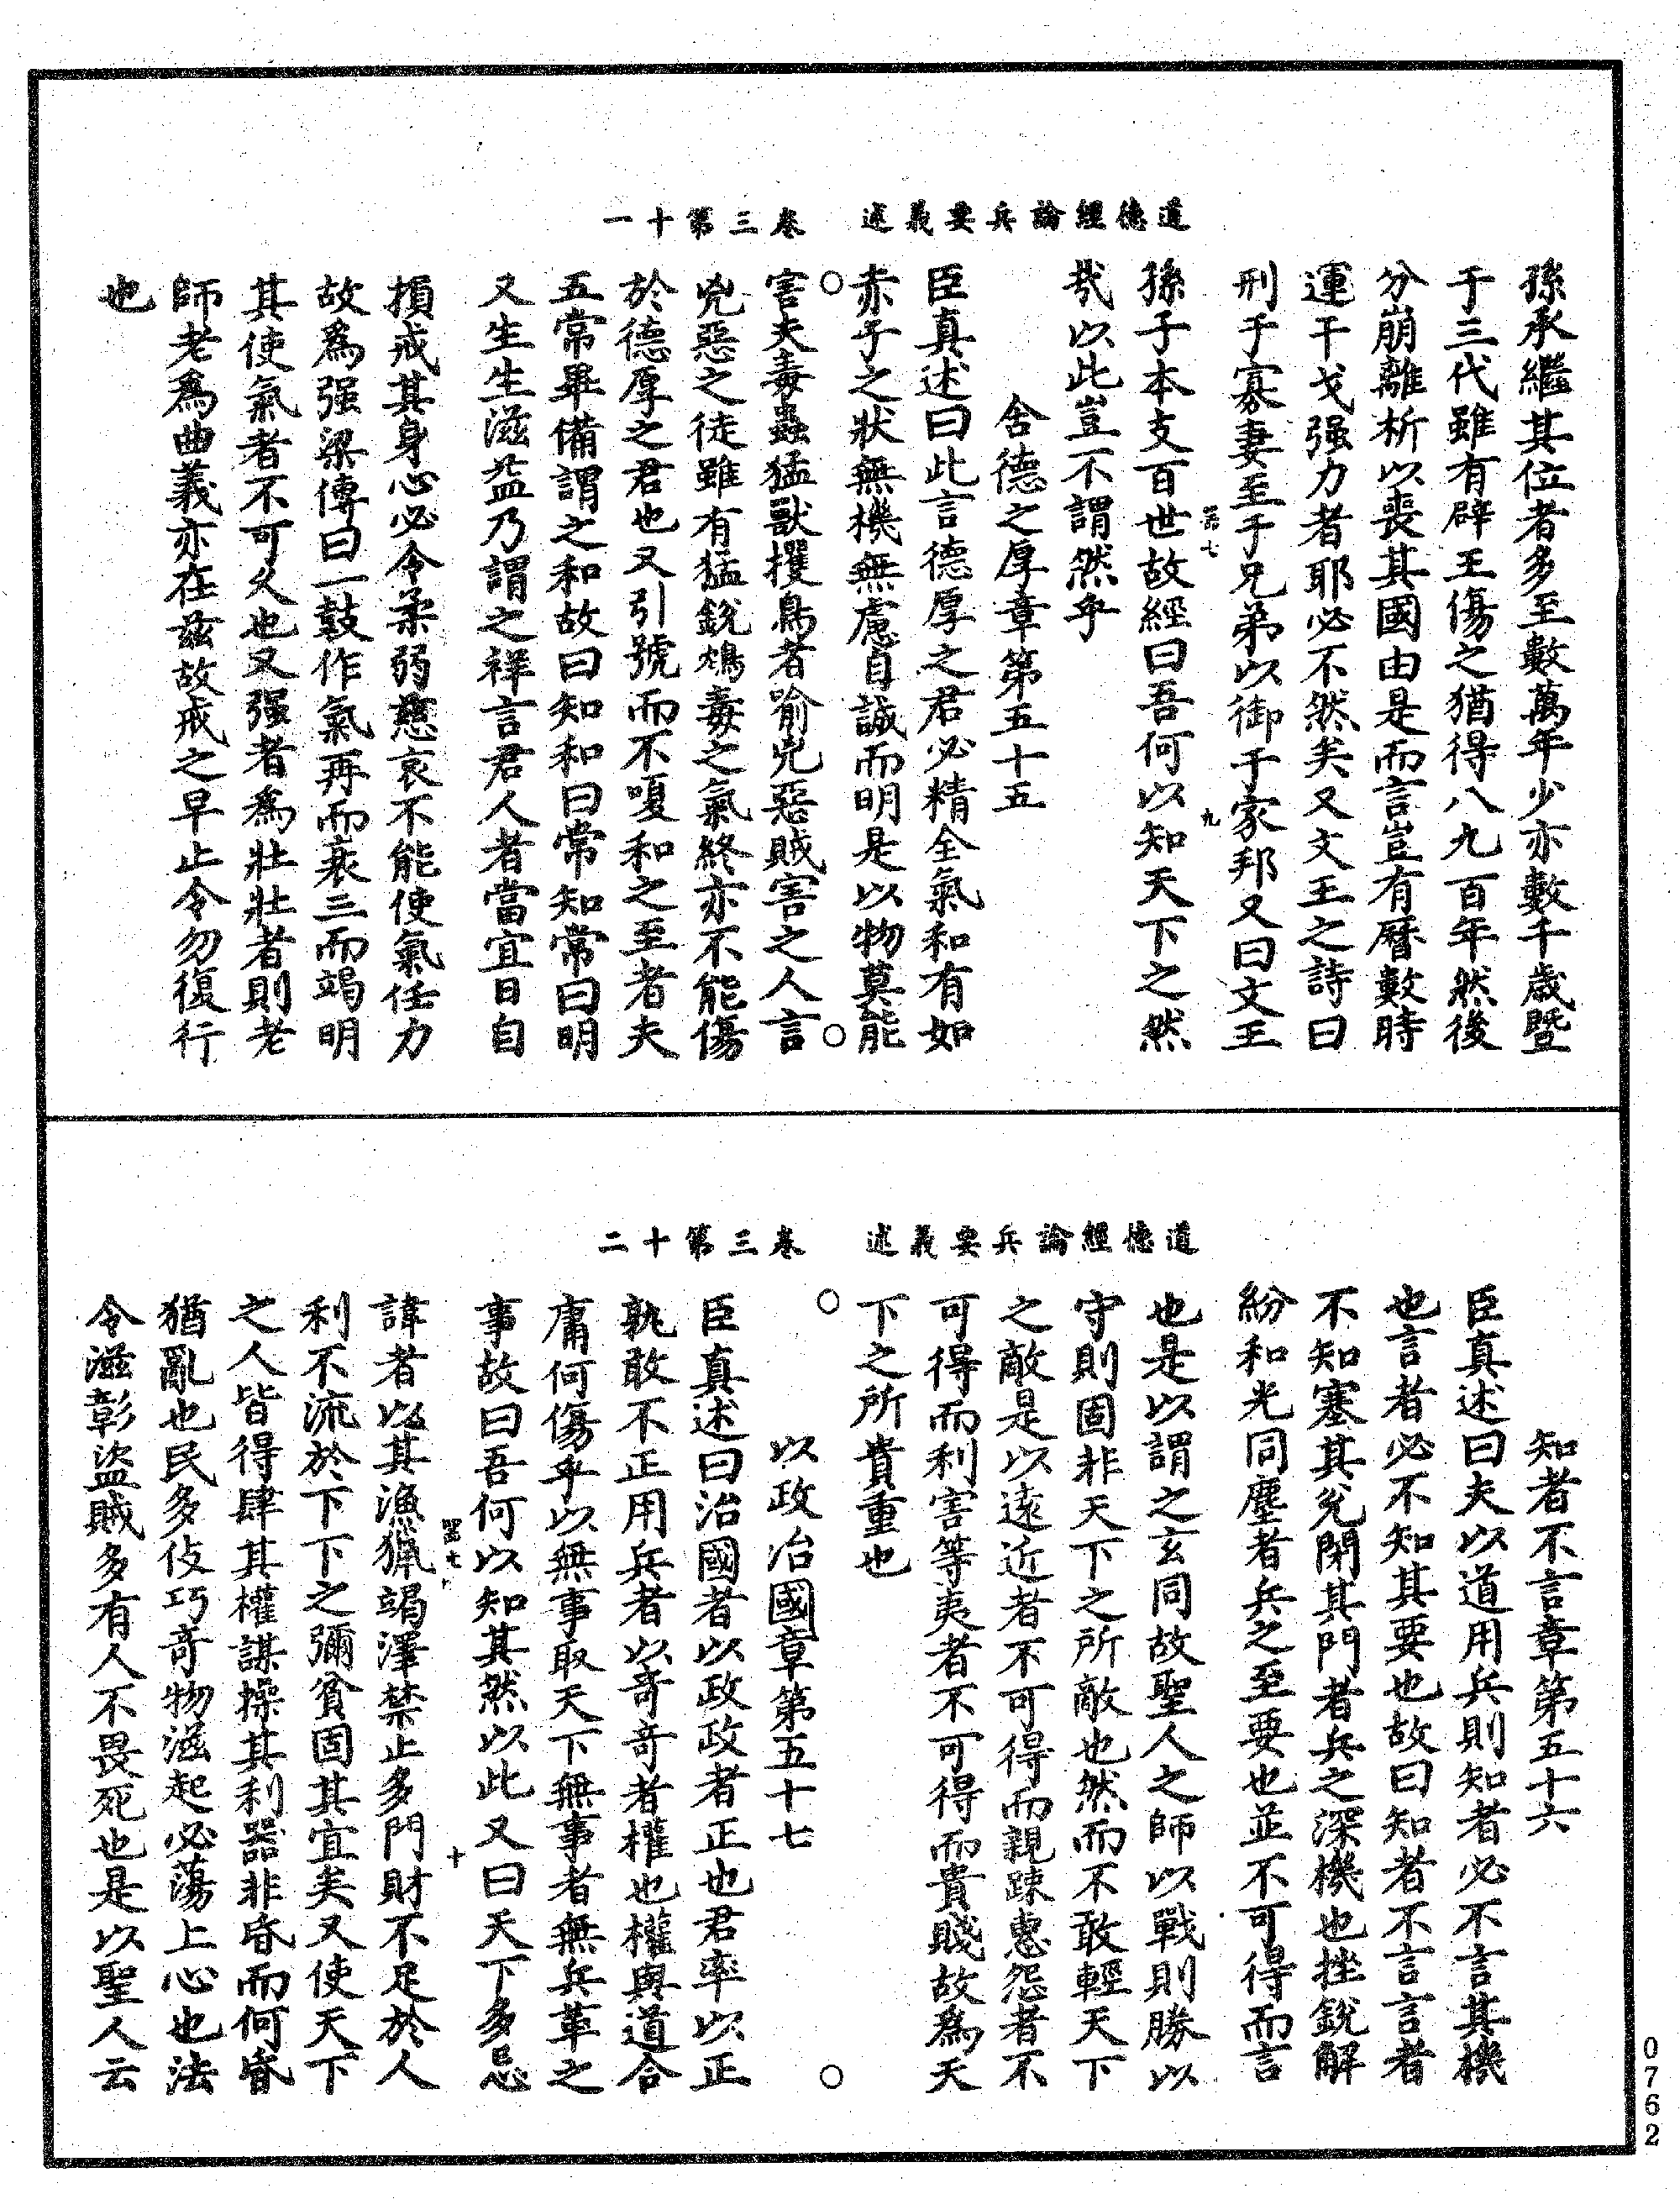 道德經論兵要義述　卷三第十一
孫承繼其位者多至數萬年少亦數千歲暨
于三代雖有辟王傷之猶得八九百年然後
分崩離析以喪其國由是而言豈有曆數時
運干戈强力者耶必不然矣又文王之詩曰
刑于寡妻至于兄弟以御于家邦又曰文王
九
孫子本支百世故經曰吾何以知天下之然
哉以此豈不謂然乎
含德之厚章第五十五
臣真述曰此言德厚之君必精全氣和有如
赤子之狀無機無慮自誠而明是以物莫能
害夫毒蟲猛獸攫鳥者喻兇惡賊害之人言
兇惡之徒雖有猛銳鴆毒之氣終亦不能傷
於德厚之君也又引號而不嗄和之至者夫
五常畢備謂之和故曰知和曰常知常曰明
又生生滋益乃謂之祥言君人者當宜日自
損戒其身心必令柔弱慈哀不能使氣任力
故爲强梁傳曰一鼓作氣再而衰三而竭明
其使氣者不可久也又强者爲壯壯者則老
師老爲曲義亦在茲故戒之早止令勿復行
也
道德經論兵要義述　卷三第十二
知者不言章第五十六
臣真述曰夫以道用兵則知者必不言其機
也言者必不知其要也故曰知者不言言者
不知塞其兌閉其門者兵之深機也挫銳解
紛和光同塵者兵之至要也並不可得而言
也是以謂之玄同故聖人之師以戰則勝以
守則固非天下之所敵也然而不敢輕天下
之敵是以遠近者不可得而親踈惠怨者不
可得而利害等夷者不可得而貴賤故爲天
下之所貴重也
以政治國章第五十七
臣真述曰治國者以政政者正也君率以正
孰敢不正用兵者以奇奇者權也權與道合
庸何傷乎以無事取天下無事者無兵革之
事故曰吾何以知其然以此又曰天下多忌
十
諱者以其漁獵竭澤禁止多門財不足於人
利不流於下下之彌貧固其宜矣又使天下
之人皆得肆其權謀操其利器非昏而何昏
猶亂也民多伎巧奇物滋起必蕩上心也法
令滋彰盜賊多有人不畏死也是以聖人云
0762